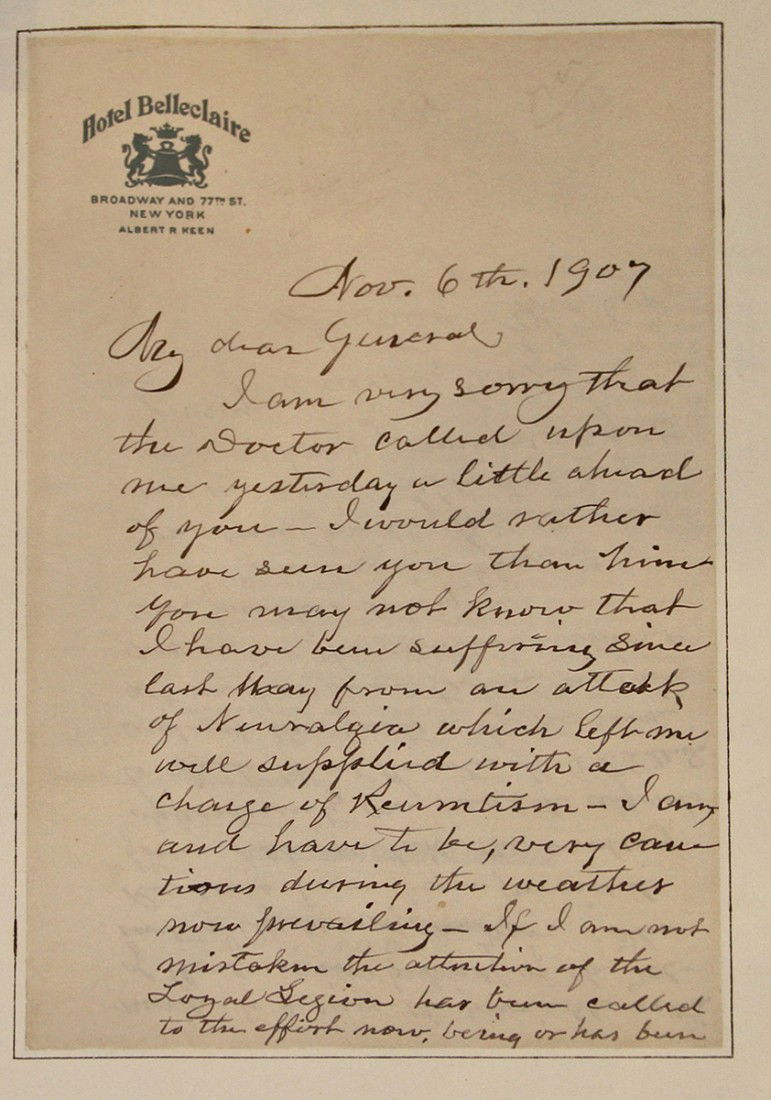 Hotel Belleclaire
BROADWAY AND 77TH ST.
NEW YORK
ALBERT R KEEN
Nov. 6th. 1907
My dear General,
I am very sorry that
the Doctor called upon
me yesterday a little ahead
of you – I would rather
have seen you than him
You may not know that
I have been suffering since
last May from an attack
of Neuralgia which left me
well supplied with a
charge of Reumtism – I am,
and have to be, very cau
tious during the weather
now prevailing – If I am not
mistaken the attention of the
Loyal Legion has been called
to the effort now, being or has been